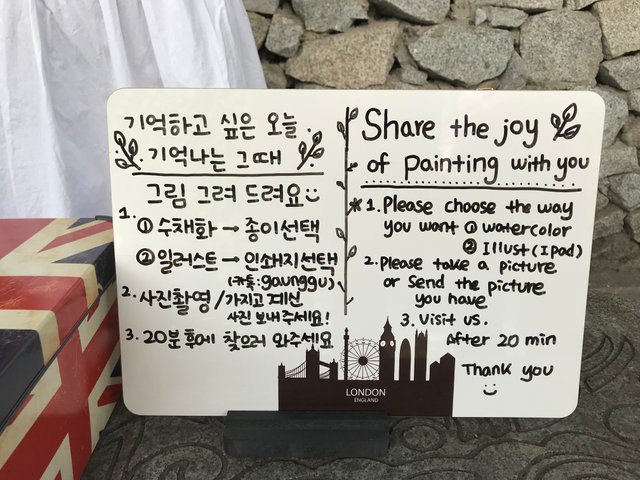 기억하고 싶은 오늘
기억나는 그때
그림 그려 드려요
1.
① 수채화 → 종이선택
② 일러스트 → 인쇄지선택
(카톡:gounggu)
2. 사진촬영 / 가지고 계신
사진 보내주세요!
3. 20분후에 찾으러 와주세요
Share the joy
of Painting with you
* 1. Please choose the way
you want ① watercolor
② Illust (Ipad)
2. Please take a picture
or Send the picture
you have
3. Visit us.
After 20 min
Thank you
LONDON
ENGLAND